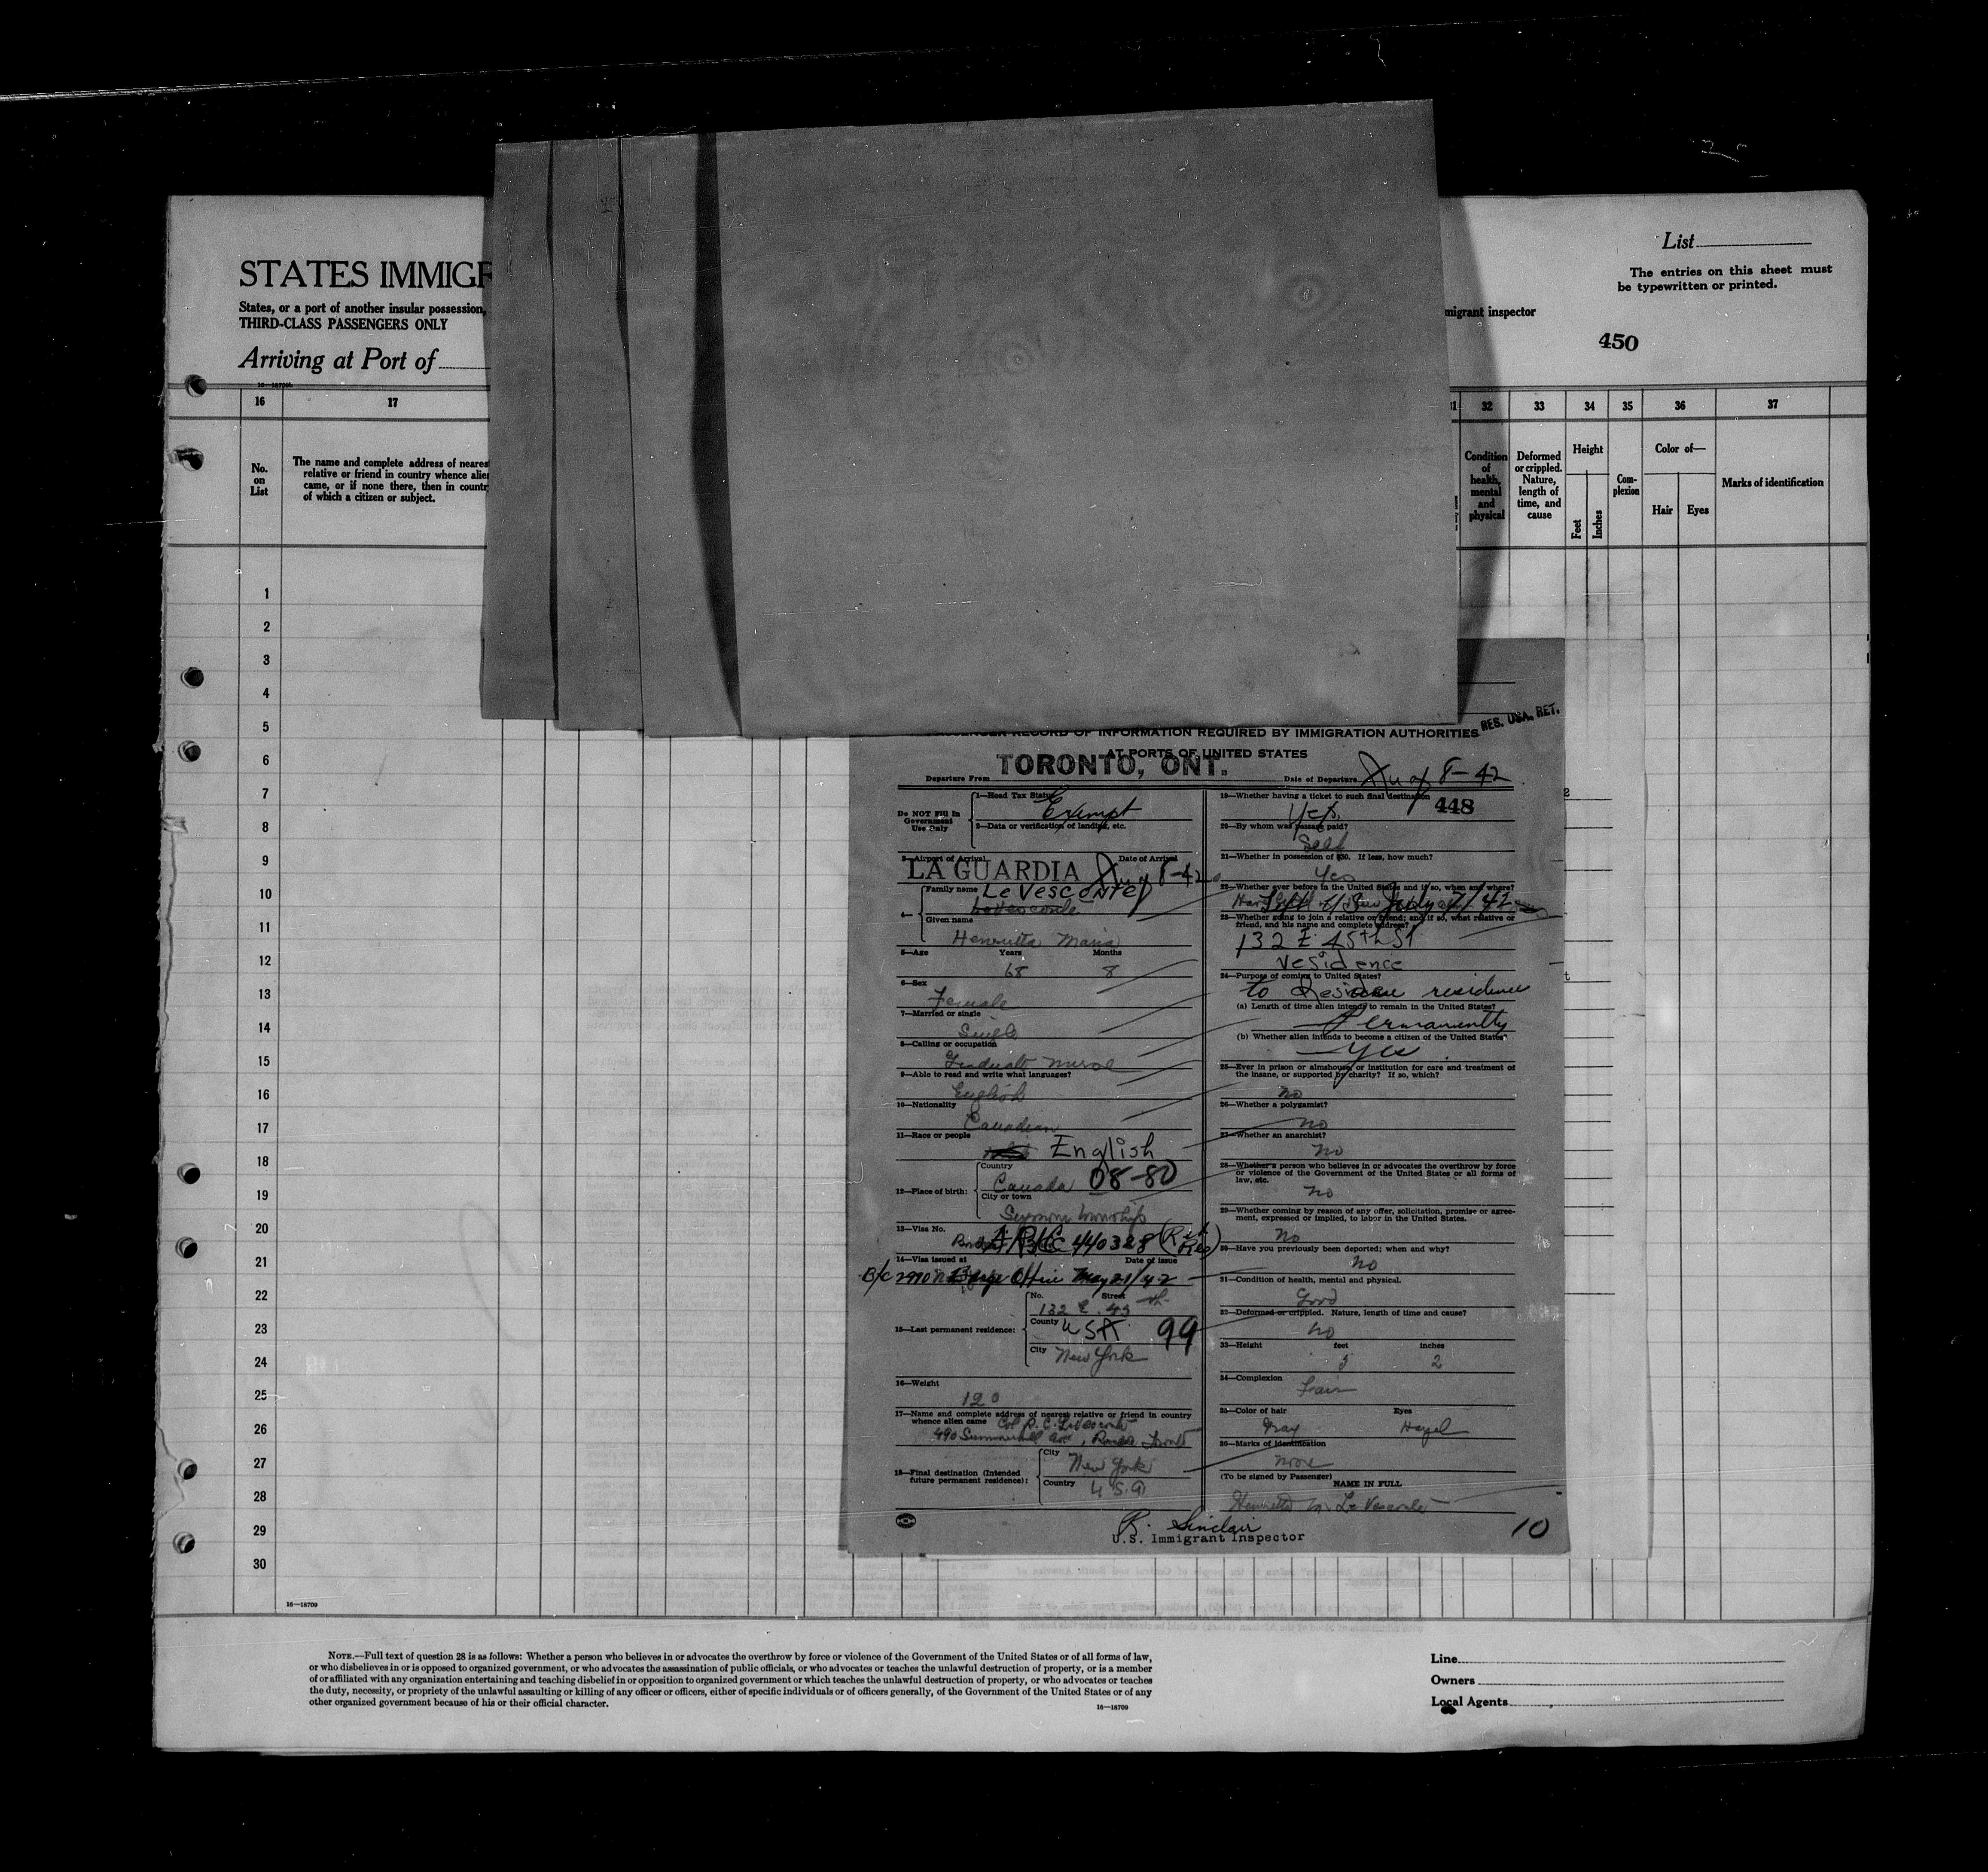 STATES IMMIGR
States, or a port of another insular possession,
THIRD-CLASS PASSENGERS ONLY
Arriving at Port of
16—18709b
migrant inspector
List
The entries on this sheet must
be typewritten or printed.
450
16 17 32 33 34 35 36 37
No.
on
List
The name and complete address of nearest
relative or friend in country whence alien
came, or if none there, then in country
of which a citizen or subject.
Condition
of
health,
mental
and
physical
Deformed
or crippled.
Nature,
length of
time, and
cause
Height
Feet
Inches
Com-
plexion
Color of—
Hair Eyes
Marks of identification
1
2
3
4
5
6
7
8
9
10
11
12
13
14
15
16
17
18
19
20
21
22
23
24
25
26
27
28
29
30
16—18709
RES. USA. RET.
RECORD OF INFORMATION REQUIRED BY IMMIGRATION AUTHORITIES
AT PORTS OF UNITED STATES
Departure From TORONTO, ONT.
Date of Departure Aug 8-42
Do NOT Fill In
Government
Use Only
1—Head Tax Status
Exempt
2—Data or verification of landing, etc.
3—Airport of Arrival Date of Arrival
LA GUARDIA Aug 8-42
4—
Family name LeVesconte
LeVesconte
Given name
Henrietta Maria
5—Age Years Months
68 8
6—Sex
Female
7—Married or single
Single
8—Calling or occupation
Graduate nurse
9—Able to read and write what languages?
English
10—Nationality
Canadian
11—Race or people
English
12—Place of birth:
Country
Canada 08-80
City or town
Seymour township
13—Visa No.
440328
14—Visa issued at Date of issue
B/C 2970 Barge Office May 21/42
15—Last permanent residence:
No. Street
132 E. 45 th
County USA 99
City New York
16—Weight
120
17—Name and complete address of nearest relative or friend in country
whence alien came Col R. C. LeVesconte
490 Summerhill Ave, Toronto
18—Final destination (Intended
future permanent residence):
City
New York
Country U S A
19—Whether having a ticket to such final destination
Yes 448
20—By whom was passage paid?
Self
21—Whether in possession of $50. If less, how much?
Yes
22—Whether ever before in the United States and if so, when and where?
July 7/42
23—Whether going to join a relative or friend; and if so, what relative or
friend, and his name and complete address?
132 E 45th St
residence
24—Purpose of coming to United States?
to residence
(a) Length of time alien intends to remain in the United States?
Permanently
(b) Whether alien intends to become a citizen of the United States
Yes
25—Ever in prison or almshouse, or institution for care and treatment of
the insane, or supported by charity? If so, which?
no
26—Whether a polygamist?
no
27—Whether an anarchist?
no
28—Whether a person who believes in or advocates the overthrow by force
or violence of the Government of the United States or all forms of
law, etc.
no
29—Whether coming by reason of any offer, solicitation, promise or agree-
ment, expressed or implied, to labor in the United States.
No
30—Have you previously been deported; when and why?
no
31—Condition of health, mental and physical.
Good
32—Deformed or crippled. Nature, length of time and cause?
no
33—Height feet inches
5 2
34—Complexion
Fair
35—Color of hair Eyes
Gray Hazel
36—Marks of identification
none
(To be signed by Passenger)
NAME IN FULL
Henrietta M. Le Vesconte
R. Sinclair
U.S. Immigrant Inspector
10
NOTE.—Full text of question 28 is as follows: Whether a person who believes in or advocates the overthrow by force or violence of the Government of the United States or of all forms of law,
or who disbelieves in or is opposed to organized government, or who advocates the assassination of public officials, or who advocates or teaches the unlawful destruction of property, or is a member
of or affiliated with any organization entertaining and teaching disbelief in or opposition to organized government or which teaches the unlawful destruction of property, or who advocates or teaches
the duty, necessity, or propriety of the unlawful assaulting or killing of any officer or officers, either of specific individuals or of officers generally, of the Government of the United States or of any
other organized government because of his or their official character.
16—18709
Line
Owners
Local Agents